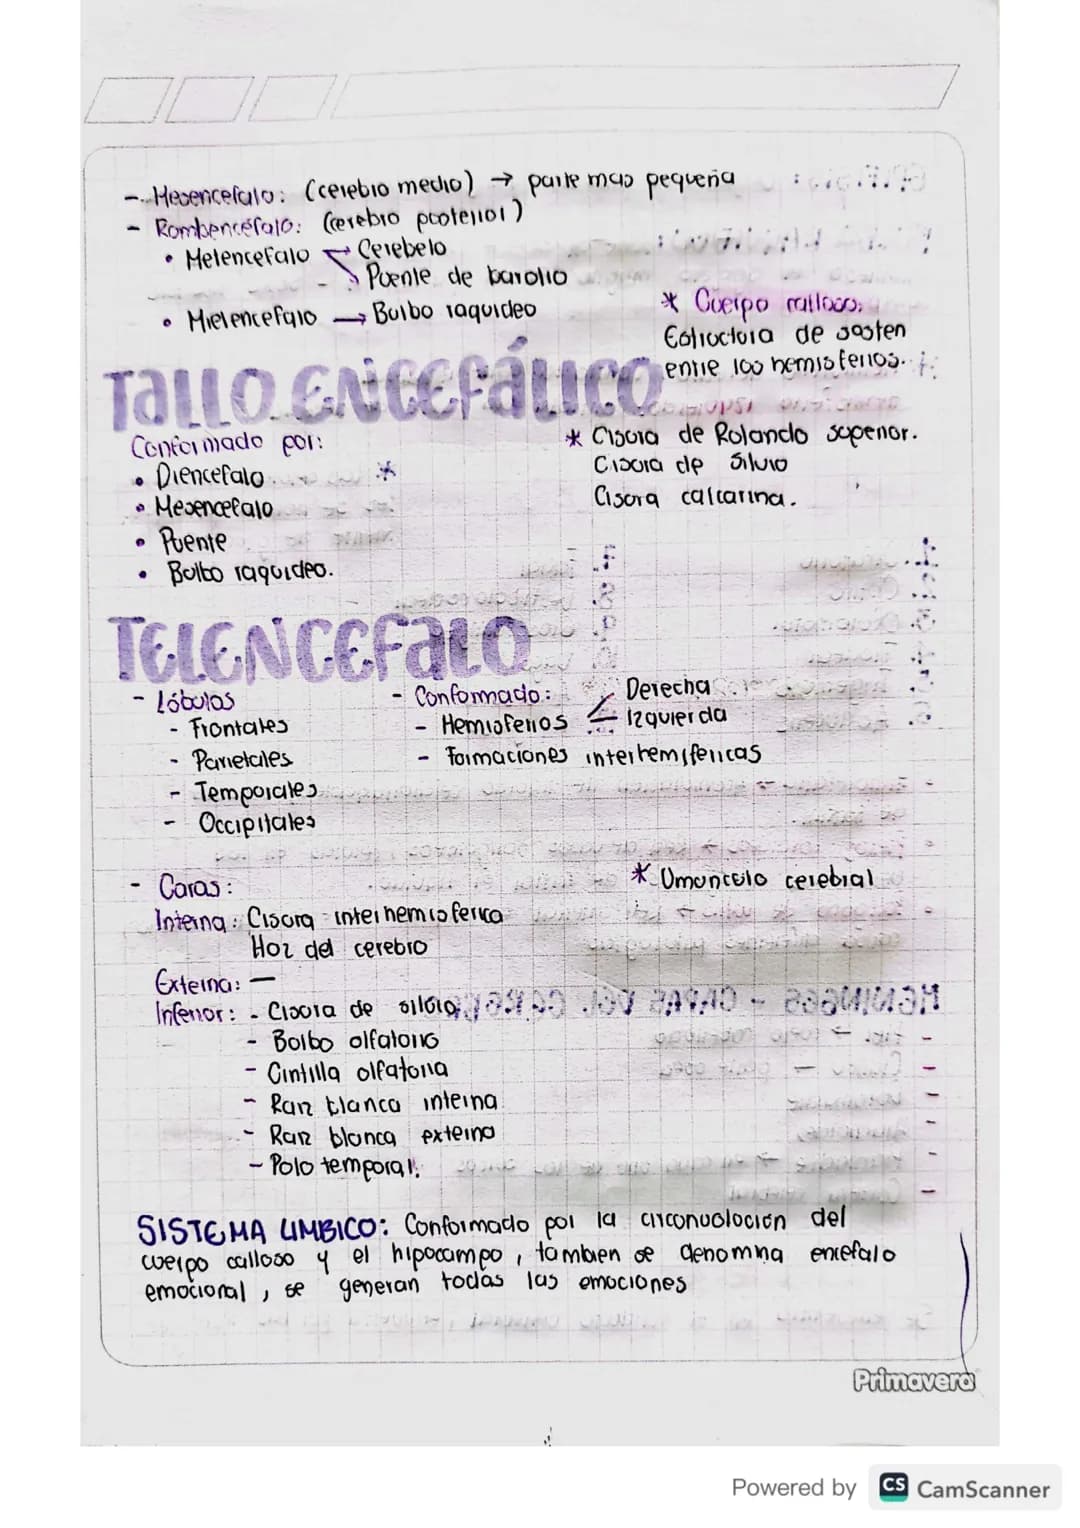 - Mesencefalo: (cerebro medio) → parte mas pequeña
- Rombencéfalo: (cerebro posterior)
• Metencefalo → Cerebelo
↘ Puente de barolio
• Mielencefalo → Bulbo raquideo
* Cuerpo calloso:
Estructura de sosten
entre los hemisferios.
TALLO ENCEFÁLICO
Conformado por:
• Diencefalo *
• Mesencefalo
• Puente
• Bulbo raquideo.
* Cisura de Rolando superior.
Cisura de Silvio
Cisura calcarina.
TELENCEFALO
- Lóbulos
- Frontales
- Parietales
- Temporales
- Occipitales
- Conformado:
- Hemisferios < Derecha
Izquierda
- Formaciones interhemisfericas
- Caras:
* Umunculo cerebral
Interna: Cisura interhemisferica
Hoz del cerebro
Externa: —
Inferior: - Cisura de silvio
- Bulbo olfatorio
- Cintilla olfatoria
- Raiz blanca interna
- Raiz blanca externa
- Polo temporal.
SISTEMA LIMBICO: Conformado por la circonvoloción del
cuerpo calloso y el hipocampo, tambien se denomina encefalo
emocional, se generan todas las emociones
Primavera
Powered by CS CamScanner